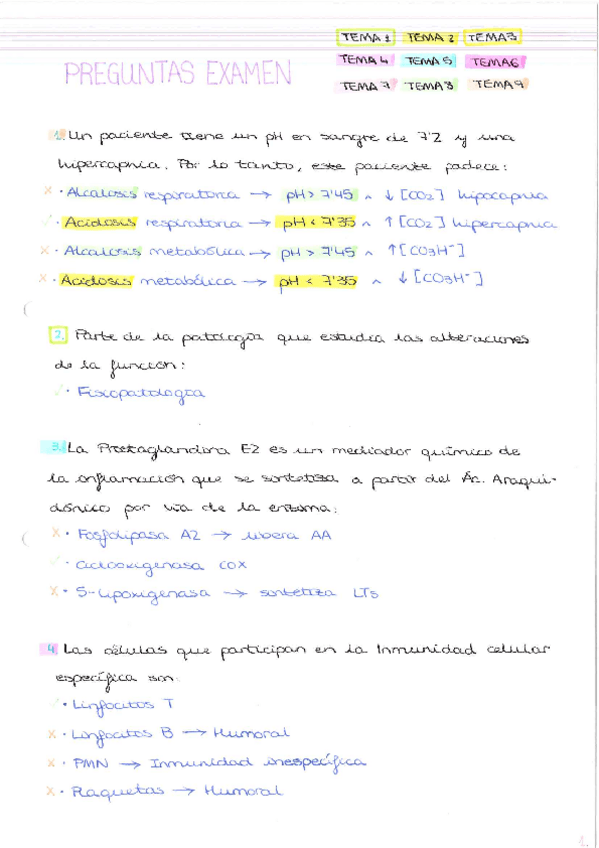 TEMA 1 TEMA 2 TEMA 3
TEMA 4 TEMA 5 TEMA 6
TEMA 7 TEMA 8 TEMA 9
PREGUNTAS EXAMEN
1. Un paciente tiene un pH en sangre de 7'2 y una
hipercapnia. Por lo tanto, este paciente padece:
x · Alcalosis respiratoria → pH > 7'45 ^ ↓ [CO2] hipocapnia
✓ · Acidosis respiratoria → pH < 7'35 ^ ↑ [CO2] hipercapnia
x · Alcalosis metabólica → pH > 7'45 ^ ↑ [CO3H⁻]
x · Acidosis metabólica → pH < 7'35 ^ ↓ [CO3H⁻]
2. Parte de la patología que estudia las alteraciones
de la función:
✓ · Fisiopatología
3. La Prostaglandina E2 es un mediador químico de
la inflamación que se sintetiza a partir del Ác. Araqui-
dónico por vía de la enzima:
x · Fosfolipasa A2 → libera AA
✓ · Ciclooxigenasa COX
x · 5-lipoxigenasa → sintetiza LTs
4. Las células que participan en la Inmunidad celular
específica son:
✓ · Linfocitos T
x · Linfocitos B → Humoral
x · PMN → Inmunidad inespecífica
x · Plaquetas → Humoral
1.